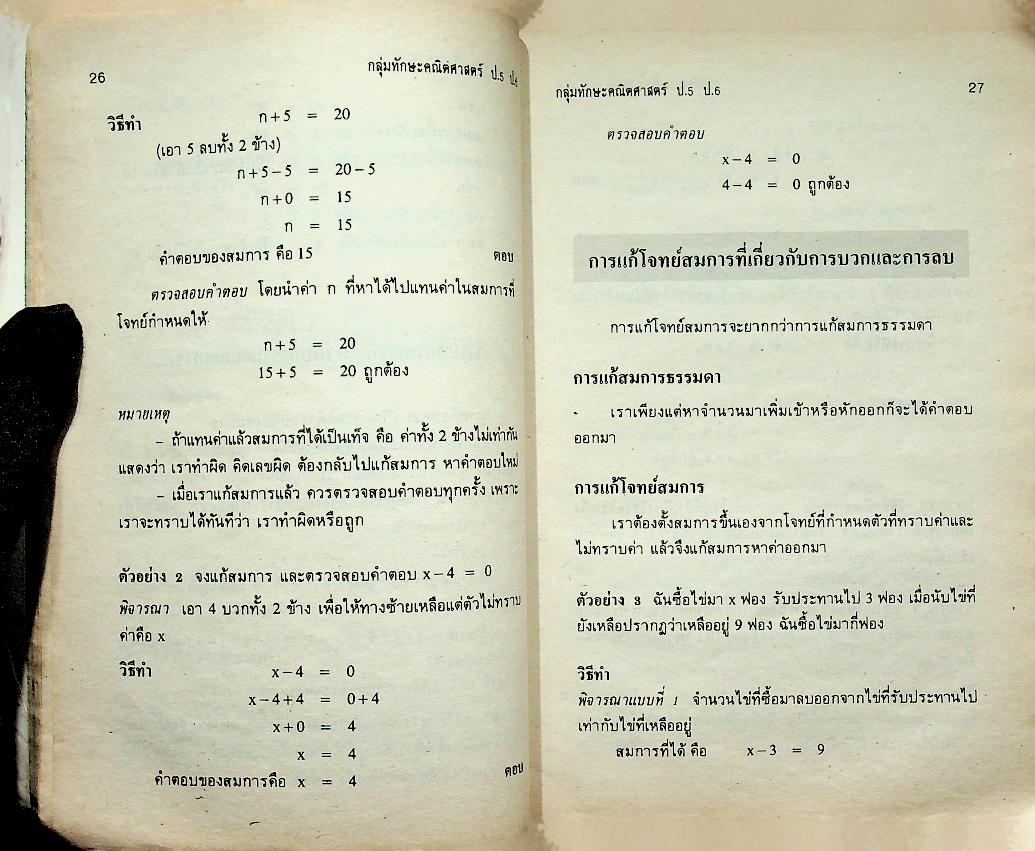 26
กลุ่มทักษะคณิตศาสตร์ ป.5 ป.6
วิธีทำ n+5 = 20
(เอา 5 ลบทั้ง 2 ข้าง)
n+5−5 = 20−5
n+0 = 15
n = 15
คำตอบของสมการ คือ 15 ตอบ
ตรวจสอบคำตอบ โดยนำค่า n ที่หาได้ไปแทนค่าในสมการที่
โจทย์กำหนดให้
n+5 = 20
15+5 = 20 ถูกต้อง
หมายเหตุ
− ถ้าแทนค่าแล้วสมการที่ได้เป็นเท็จ คือ ค่าทั้ง 2 ข้างไม่เท่ากัน
แสดงว่า เราทำผิด คิดเลขผิด ต้องกลับไปแก้สมการ หาคำตอบใหม่
− เมื่อเราแก้สมการแล้ว ควรตรวจสอบคำตอบทุกครั้ง เพราะ
เราจะทราบได้ทันทีว่า เราทำผิดหรือถูก
ตัวอย่าง 2 จงแก้สมการ และตรวจสอบคำตอบ x−4 = 0
พิจารณา เอา 4 บวกทั้ง 2 ข้าง เพื่อให้ทางซ้ายเหลือแต่ตัวไม่ทราบ
ค่าคือ x
วิธีทำ x−4 = 0
x−4+4 = 0+4
x+0 = 4
x = 4
คำตอบของสมการคือ x = 4 ตอบ
กลุ่มทักษะคณิตศาสตร์ ป.5 ป.6
27
ตรวจสอบคำตอบ
x−4 = 0
4−4 = 0 ถูกต้อง
การแก้โจทย์สมการที่เกี่ยวกับการบวกและการลบ
การแก้โจทย์สมการจะยากกว่าการแก้สมการธรรมดา
การแก้สมการธรรมดา
เราเพียงแต่หาจำนวนมาเพิ่มเข้าหรือหักออกก็จะได้คำตอบ
ออกมา
การแก้โจทย์สมการ
เราต้องตั้งสมการขึ้นเองจากโจทย์ที่กำหนดตัวที่ทราบค่าและ
ไม่ทราบค่า แล้วจึงแก้สมการหาค่าออกมา
ตัวอย่าง 3 ฉันซื้อไข่มา x ฟอง รับประทานไป 3 ฟอง เมื่อนับไข่ที่
ยังเหลือปรากฏว่าเหลืออยู่ 9 ฟอง ฉันซื้อไข่มากี่ฟอง
วิธีทำ
พิจารณาแบบที่ 1 จำนวนไข่ที่ซื้อมาลบออกจากไข่ที่รับประทานไป
เท่ากับไข่ที่เหลืออยู่
สมการที่ได้ คือ x−3 = 9